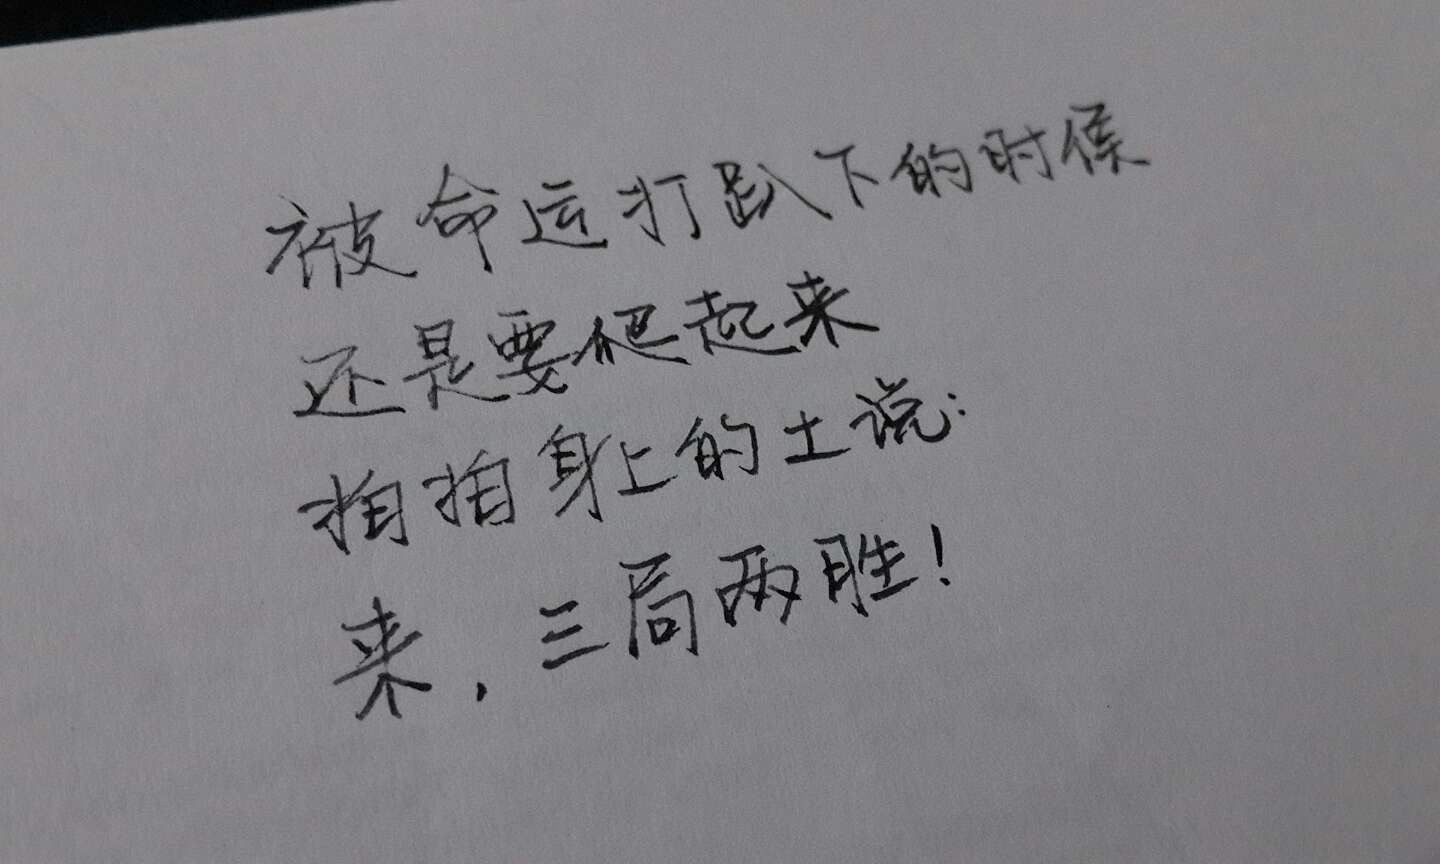 被命运打趴下的时候
还是要爬起来
拍拍身上的土说：
来，三局两胜！